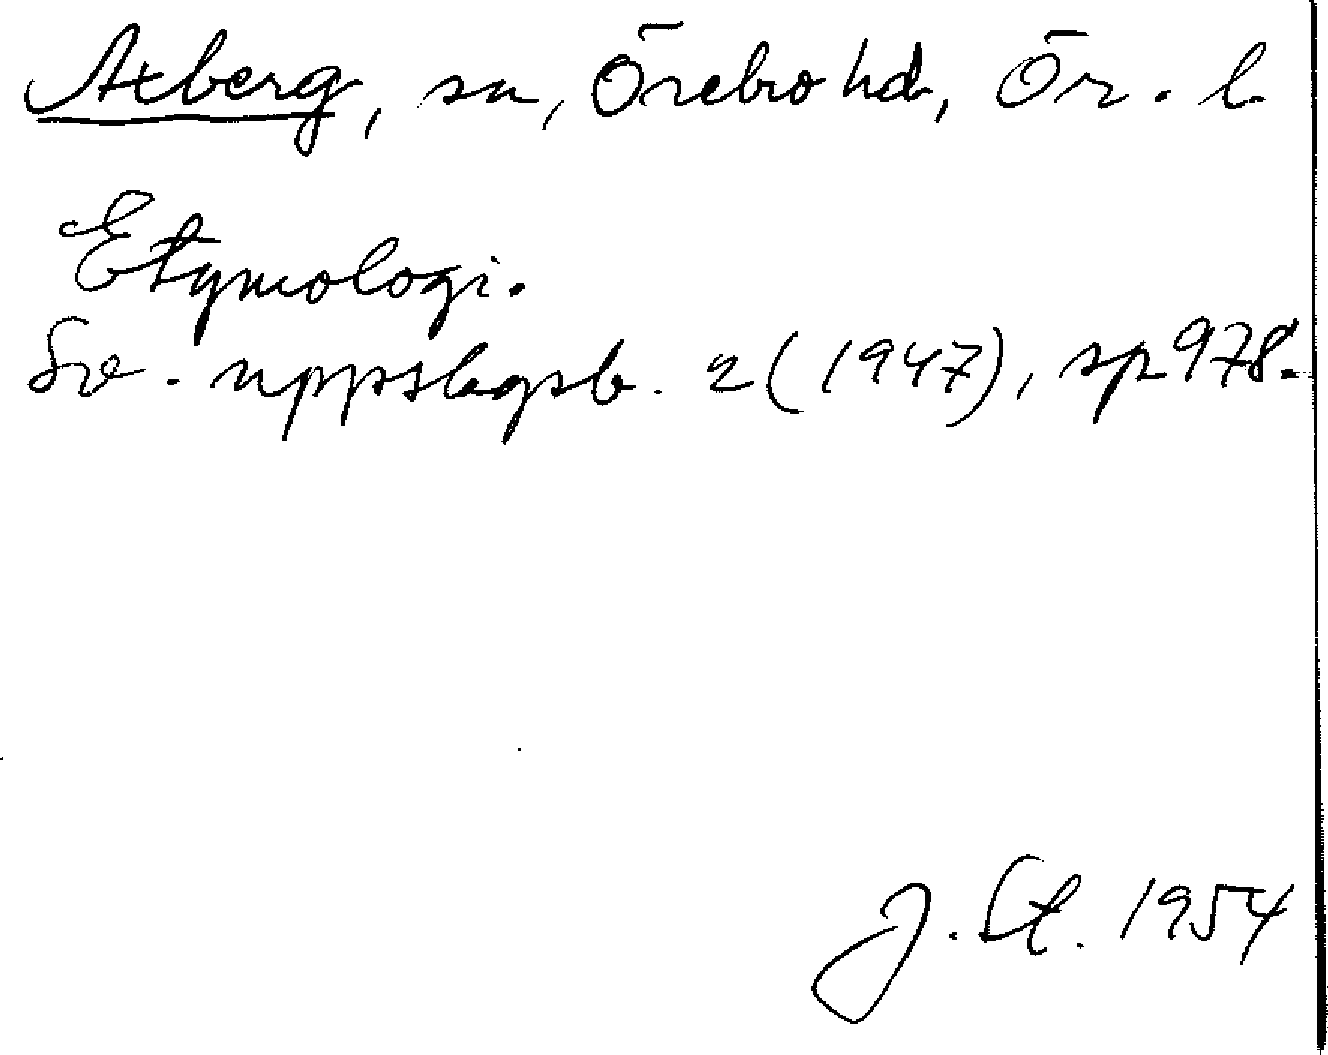 Axberg, sn, Örebro hd, Ör. l.
Etymologi.
Sv. uppslagsb. 2 (1947), sp 978.
J. St. 1954